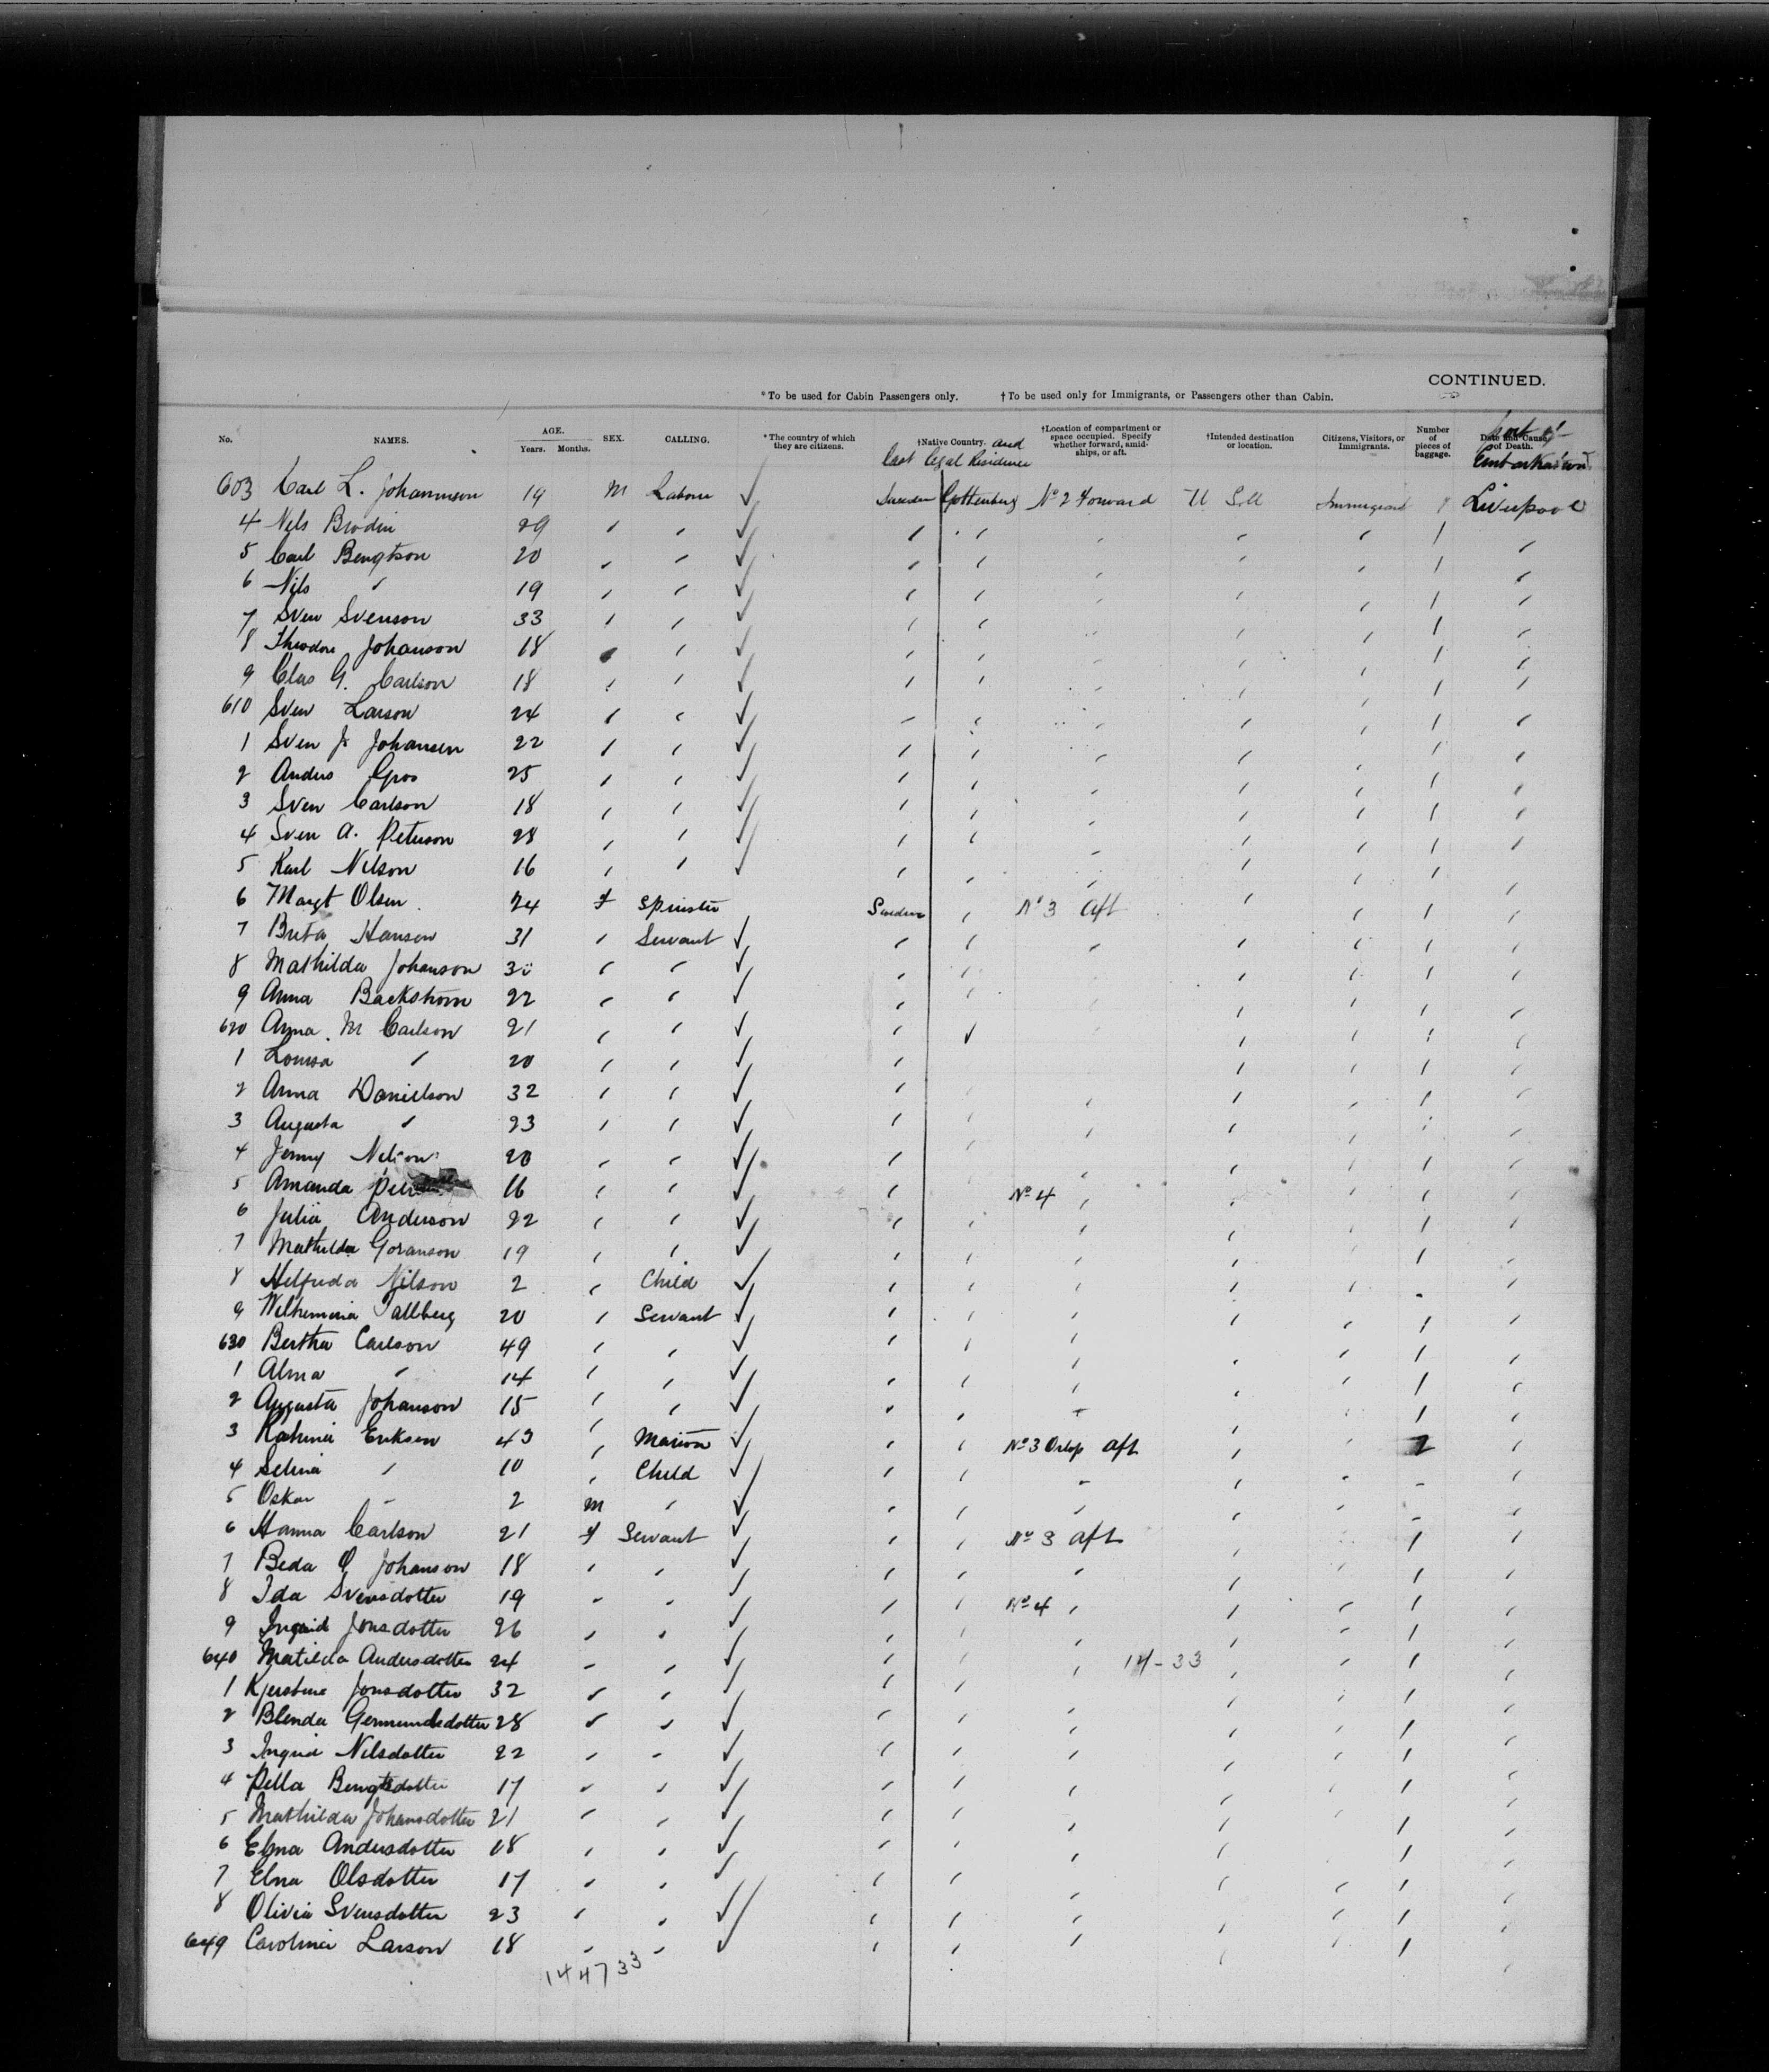 CONTINUED.
*To be used for Cabin Passengers only. †To be used only for Immigrants, or Passengers other than Cabin.
No. NAMES. AGE. Years. Months. SEX. CALLING. *The country of which they are citizens. †Native Country. and last legal Residence †Location of compartment or space occupied. Specify whether forward, amidships, or aft. †Intended destination or location. Citizens, Visitors, or Immigrants. Number of pieces of baggage. Date and Cause of Death. Port of Embarkation
603 Carl L. Johannson 19 M Labour ✓ Sweden Gottenburg No 2 Forward U S Immigrant 1 Liverpool
4 Nils Brodin 29 " " ✓ " " " " " 1 "
5 Carl Bengtson 20 " " ✓ " " " " " 1 "
6 Nils " 19 " " ✓ " " " " " 1 "
7 Sven Svenson 33 " " ✓ " " " " " 1 "
8 Theodore Johanson 18 " " ✓ " " " " " 1 "
9 Clas G. Carlson 18 " " ✓ " " " " " 1 "
610 Sven Larson 24 " " ✓ " " " " " 1 "
1 Sven J. Johansen 22 " " ✓ " " " " " 1 "
2 Anders Gros 25 " " ✓ " " " " " 1 "
3 Sven Carlson 18 " " ✓ " " " " " 1 "
4 Sven A. Peterson 28 " " ✓ " " " " " 1 "
5 Karl Nilson 16 " " ✓ " " " " " 1 "
6 Margt Olsen 24 f Spinster Sweden " No 3 aft " " 1 "
7 Brita Hansen 31 " Servant ✓ " " " " " 1 "
8 Mathilda Johanson 30 " " ✓ " " " " 1 "
9 Anna Backstrom 22 " " ✓ " " " " 1 "
620 Anna M Carlson 21 " " ✓ " " " " 1 "
1 Louisa " 20 " " ✓ " " " 1 "
2 Anna Danielson 32 " " ✓ " " " " " 1 "
3 Augusta " 23 " " ✓ " " " " " 1 "
4 Jenny Nelson 20 " " ✓ " " " " " 1 "
5 Amanda 16 " " ✓ " " No 4 " " " 1 "
6 Julia Anderson 22 " " ✓ " " " " " 1 "
7 Mathilda Goranson 19 " " ✓ " " " " " 1 "
8 Helfrida Nilson 2 " Child ✓ " " " " " - "
9 Wilhemina Tallberg 20 " Servant ✓ " " " " " 1 "
630 Bertha Carlson 49 " " ✓ " " " " " 1 "
1 Alma " 14 " " ✓ " " " " " 1 "
2 Augusta Johanson 15 " " ✓ " " " " " 1 "
3 Katrina Eriksen 43 " Matron ✓ " " No 3 Orlop aft " " 2 "
4 Selma " 10 " Child ✓ " " " " " - "
5 Oskar " 2 m " ✓ " " " " " - "
6 Hanna Carlson 21 f Servant ✓ " " No 3 aft " " 1 "
7 Beda O Johanson 18 " " ✓ " " " " " 1 "
8 Ida Svensdotter 19 " " ✓ " " No 4 " " " 1 "
9 Ingrid Jonsdotter 26 " " ✓ " " " " " 1 "
640 Matilda Andersdotter 24 " " ✓ " " " 14-33 " " 1 "
1 Kjerstine Jonsdotter 32 " " ✓ " " " " " 1 "
2 Blenda Germundsdotter 28 " " ✓ " " " " " 1 "
3 Ingrid Nilsdotter 22 " " ✓ " " " " " 1 "
4 Pella Bengtsdotter 17 " " ✓ " " " " " 1 "
5 Mathilda Johansdotter 21 " " ✓ " " " " " 1 "
6 Elna Andersdotter 18 " " ✓ " " " " 1 "
7 Elna Olsdotter 17 " " ✓ " " " " " 1 "
8 Olivia Svensdotter 23 " " ✓ " " " " " 1 "
649 Carolina Larson 18 " " ✓ " " " " 1 "
144733